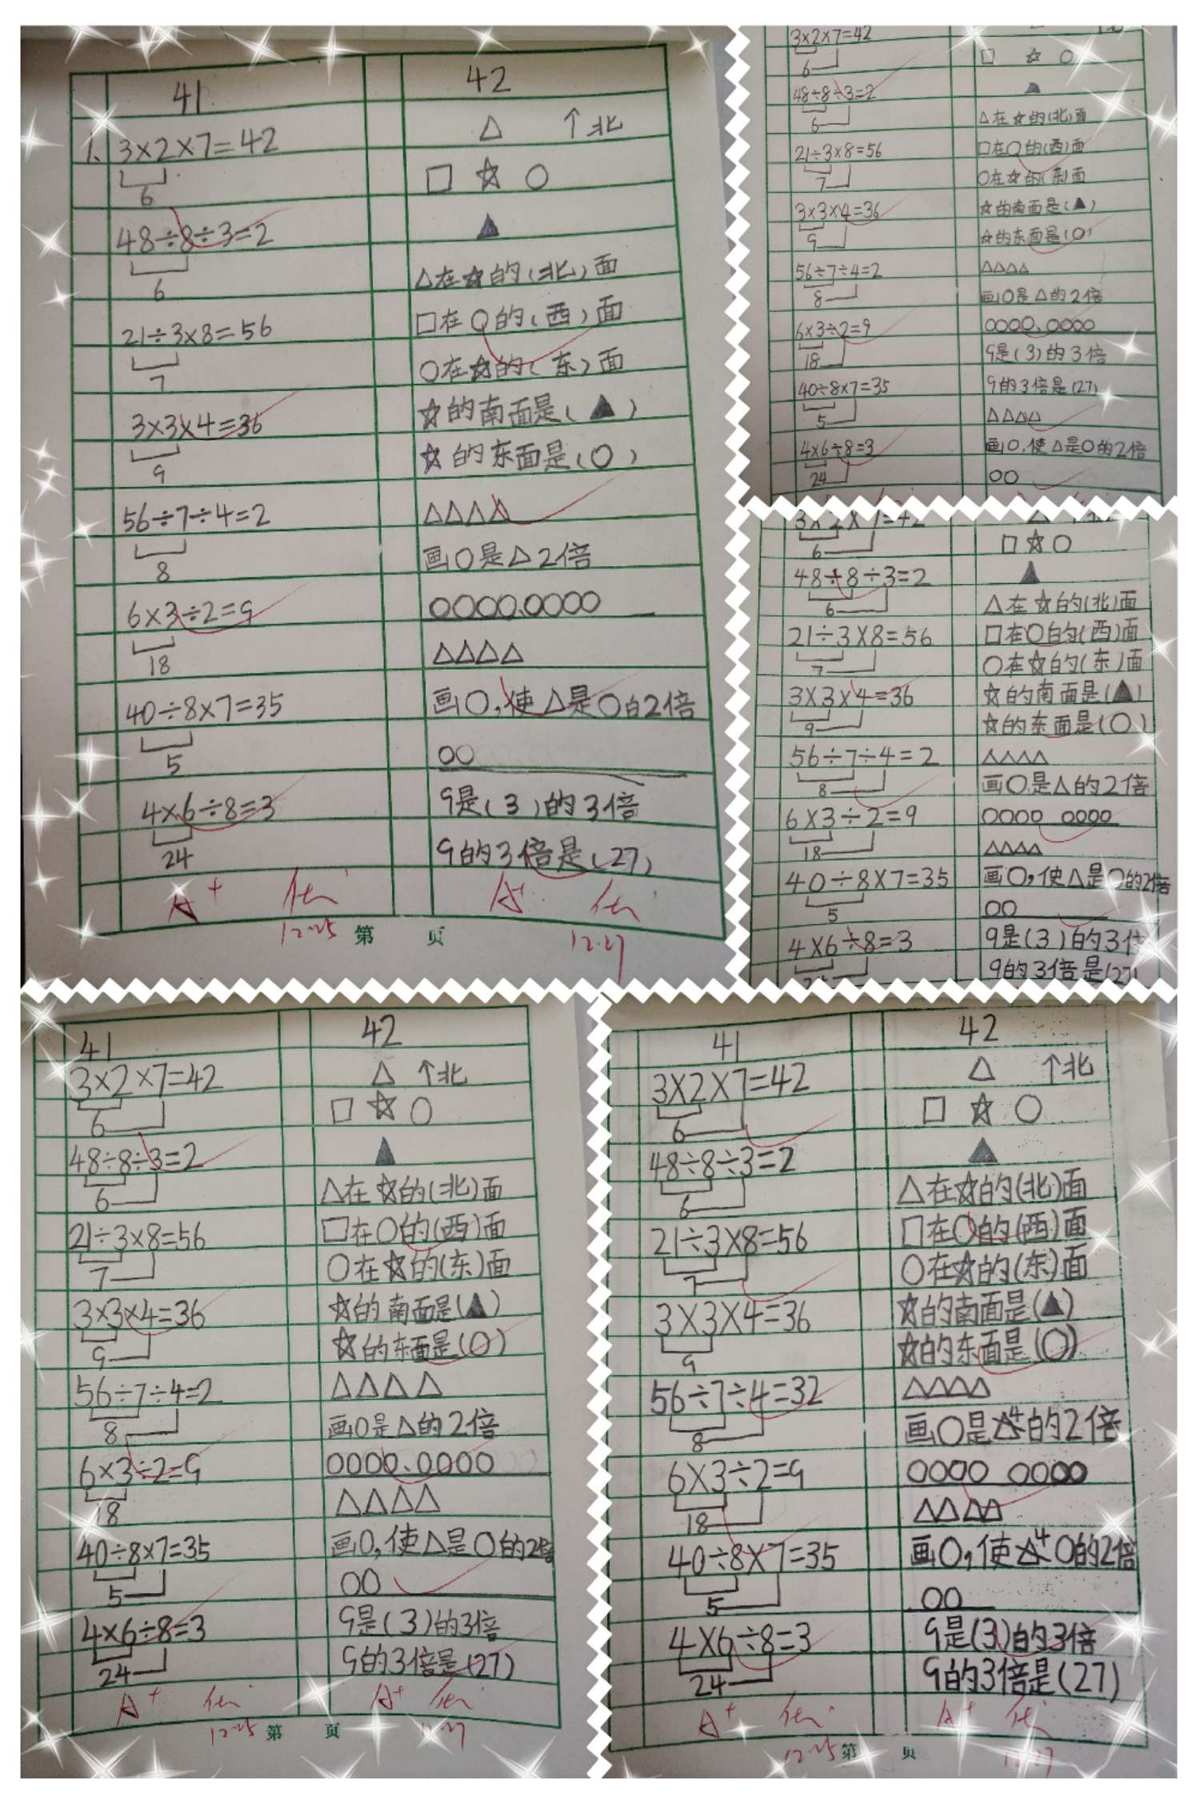 41
1. 3×2×7=42
6
48÷8÷3=2
6
21÷3×8=56
7
3×3×4=36
9
56÷7÷4=2
8
6×3÷2=9
18
40÷8×7=35
5
4×6÷8=3
24
A+
12.25
42
△ ↑北
□ ☆ ○
▲
△在☆的(北)面
□在○的(西)面
○在☆的(东)面
☆的南面是(▲)
☆的东面是(○)
△△△△
画○是△2倍
○○○○ ○○○○
△△△△
画○,使△是○的2倍
○○
9是(3)的3倍
9的3倍是(27)
A+
12.27
第 页
3×2×7=42
6
48÷8÷3=2
6
21÷3×8=56
7
3×3×4=36
9
56÷7÷4=2
8
6×3÷2=9
18
40÷8×7=35
5
4×6÷8=3
24
□ ☆ ○
▲
△在☆的(北)面
□在○的(西)面
○在☆的(东)面
☆的南面是(▲)
☆的东面是(○)
△△△△
画○是△的2倍
○○○○ ○○○○
9是(3)的3倍
9的3倍是(27)
△△△△
画○,使△是○的2倍
○○
3×2×7=42
6
48÷8÷3=2
6
21÷3×8=56
7
3×3×4=36
9
56÷7÷4=2
8
6×3÷2=9
18
40÷8×7=35
5
4×6÷8=3
□ ☆ ○
▲
△在☆的(北)面
□在○的(西)面
○在☆的(东)面
☆的南面是(▲)
☆的东面是(○)
△△△△
画○是△的2倍
○○○○ ○○○○
△△△△
画○,使△是○的2倍
○○
9是(3)的3倍
9的3倍是(27)
41
3×2×7=42
6
48÷8÷3=2
6
21÷3×8=56
7
3×3×4=36
9
56÷7÷4=2
8
6×3÷2=9
18
40÷8×7=35
5
4×6÷8=3
24
A+
12.25
42
△ ↑北
□ ☆ ○
▲
△在☆的(北)面
□在○的(西)面
○在☆的(东)面
☆的南面是(▲)
☆的东面是(○)
△△△△
画○是△的2倍
○○○○ ○○○○
△△△△
画○,使△是○的2倍
○○
9是(3)的3倍
9的3倍是(27)
A+
12.27
第 页
41
3×2×7=42
6
48÷8÷3=2
6
21÷3×8=56
7
3×3×4=36
9
56÷7÷4=32
8
6×3÷2=9
18
40÷8×7=35
5
4×6÷8=3
24
A+
12.25
42
△ ↑北
□ ☆ ○
▲
△在☆的(北)面
□在○的(西)面
○在☆的(东)面
☆的南面是(▲)
☆的东面是(○)
△△△△
画○是4的2倍
○○○○ ○○○○
△△△△
画○,使4○的2倍
○○
9是(3)的3倍
9的3倍是(27)
A+
12.27
第 页